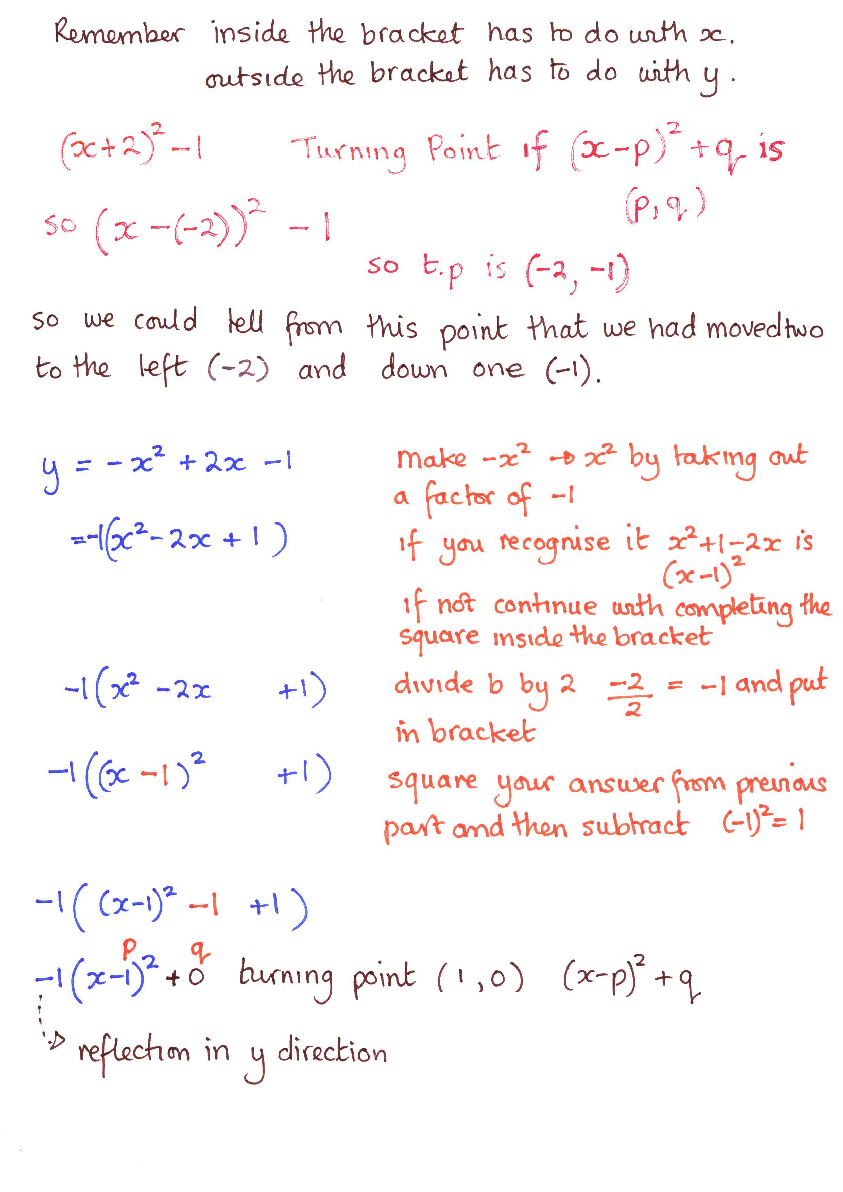 Remember inside the bracket has to do with x.
outside the bracket has to do with y.
(x+2)² -1 Turning Point if (x-p)² + q is
(p,q)
so (x -(-2))² - 1
so t.p is (-2, -1)
so we could tell from this point that we had moved two
to the left (-2) and down one (-1).
y = -x² + 2x -1 make -x² → x² by taking out
a factor of -1
= -1(x² - 2x + 1) if you recognise it x²+1-2x is
(x-1)²
if not continue with completing the
square inside the bracket
-1(x² -2x +1) divide b by 2 -2/2 = -1 and put
in bracket
-1((x -1)² +1) square your answer from previous
part and then subtract (-1)² = 1
-1((x-1)² -1 +1)
p q
-1(x-1)² + 0 turning point (1,0) (x-p)² + q
reflection in y direction